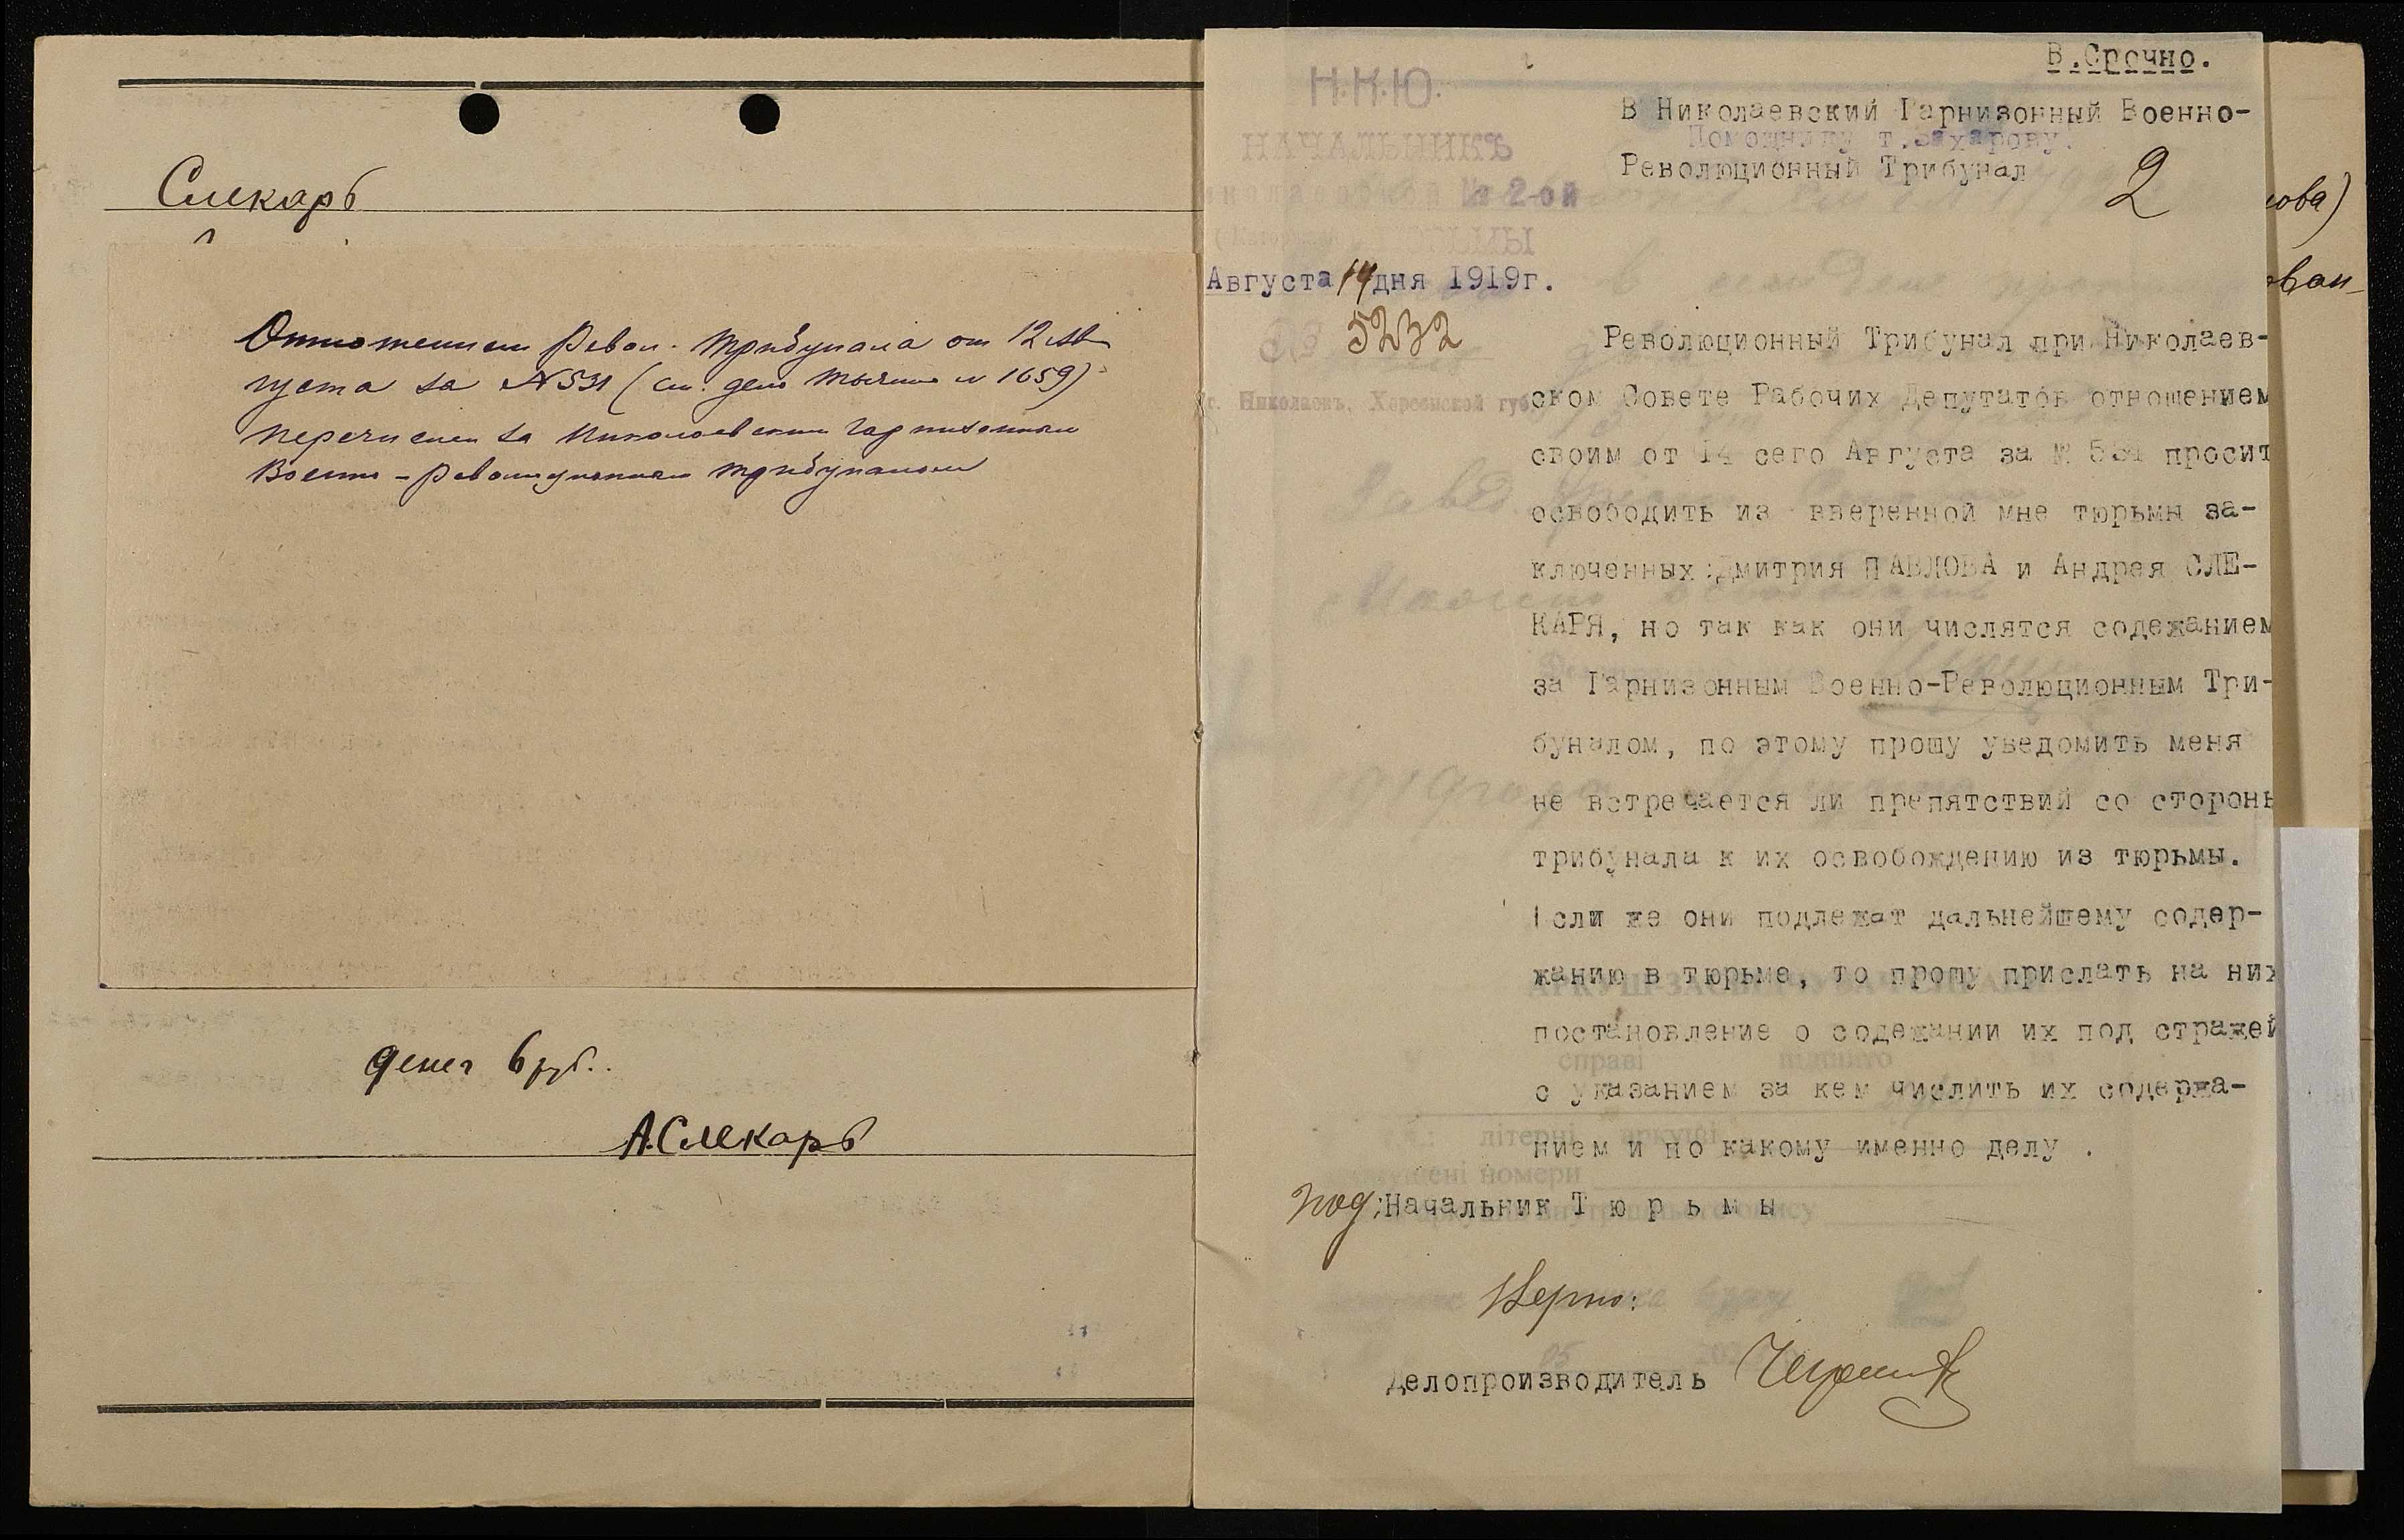 Слекарь
Отношением Револ. Трибунала от 12 Ав-
густа за №531 (см. дело Тычино № 1659)
перечислен за Николаевским Гарнизонным
Военно-Революционным Трибуналом
денег 6 руб..
А.Слекарь
В.Срочно.
Н.К.Ю.
В Николаевский Гарнизонный Военно-
Помощнику т.Захарову.
Революционный Трибунал
2
НАЧАЛЬНИКЪ
№ 2-ой
ТЮРЬМЫ
Августа 14 дня 1919г.
№ 5232
г. Николаевъ, Херсонской губ.
Революционный Трибунал при Николаев-
ском Совете Рабочих Депутатов отношением
своим от 14 сего Августа за № 531 просит
освободить из вверенной мне тюрьмы за-
ключенных:Дмитрия ПАВЛОВА и Андрея СЛЕ-
КАРЯ, но так как они числятся содежанием
за Гарнизонным Военно-Революционным Три-
буналом, по этому прошу уведомить меня
не встречается ли препятствий со стороны
трибунала к их освобождению из тюрьмы.
Если же они подлежат дальнейшему содер-
жанию в тюрьме, то прошу прислать на них
постановление о содежании их под стражей
с указанием за кем числить их содержа-
нием и по какому именно делу .
под:Начальник Т ю р ь м ы
Верно:
Делопроизводитель
ова)
ован-